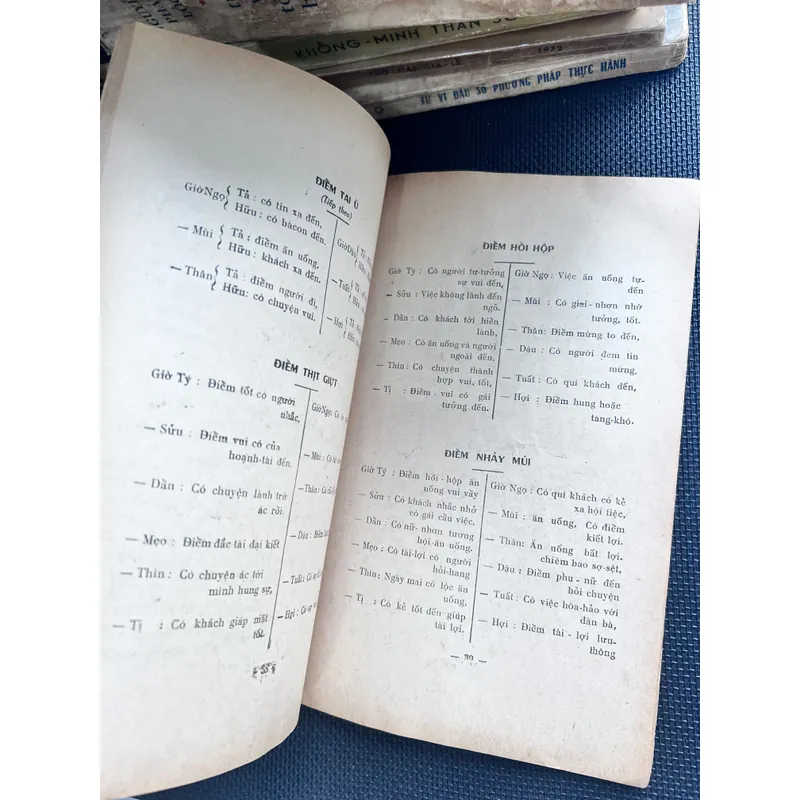 KHỔNG-MINH THẦN SỐ
1972
TỬ VI ĐẨU SỐ PHƯƠNG PHÁP THỰC HÀNH
ĐIỀM TAI Ù
(Tiếp theo)
Giờ Ngọ Tả : có tin xa đến,
Hữu : có bà con đến.
— Mùi Tả : điềm ăn uống,
Hữu : khách xa đến.
— Thân Tả : điềm người đi,
Hữu : có chuyện vui.
Giờ Dậu Tả :
Hữu
— Tuất
— Hợi
ĐIỀM THỊT GIỰT
Giờ Tý : Điềm tốt có người
nhắc,
— Sửu : Điềm vui có của
hoạnh-tài đến.
— Dần : Có chuyện lành trừ
ác rồi.
— Mẹo : Điềm đắc tài đại kiết
— Thìn : Có chuyện ác tới
mình hung sự,
— Tị : Có khách giáp mặt
tốt.
Giờ Ngọ : Có
— Mùi : Có
— Thân : Có
— Dậu :
— Tuất : Có
— Hợi : Có
ĐIỀM HỒI HỘP
Giờ Tý : Có người tư-tưởng
sự vui đến,
— Sửu : Việc không lành đến
ngõ.
— Dần : Có khách tới hiền
lành,
— Mẹo : Có ăn uống và người
ngoài đến.
— Thìn : Có chuyện thành
hợp vui, tốt,
— Tị : Điềm vui có gái
tưởng đến.
Giờ Ngọ : Việc ăn uống tự-
đến
— Mùi : Có giai-nhơn nhớ
tưởng, tốt.
— Thân : Điềm mừng to đến,
— Dậu : Có người đem tin
mừng.
— Tuất : Có qui khách đến,
— Hợi : Điềm hung hoặc
tang-khó.
ĐIỀM NHẢY MŨI
Giờ Tý : Điềm hội-hộp ăn
uống vui vầy
— Sửu : Có khách nhắc nhở
có gái cầu việc.
— Dần : Có nữ-nhơn tương
hội ăn uống.
— Mẹo : Có tài-lợi có người
hỏi-hang
— Thìn : Ngày mai có lộc ăn
uống,
— Tị : Có kẻ tốt đến giúp
tài lợi.
Giờ Ngọ : Có quí khách có kẻ
xa hội tiệc,
— Mùi : ăn uống, Có điềm
kiết lợi.
— Thân : Ăn uống bất lợi.
chiêm bao sợ-sệt,
— Dậu : Điềm phụ-nữ đến
hỏi chuyện
— Tuất : Có việc hòa-hảo với
đàn bà,
— Hợi : Điềm tài-lợi lưu-
thông
— 39 —